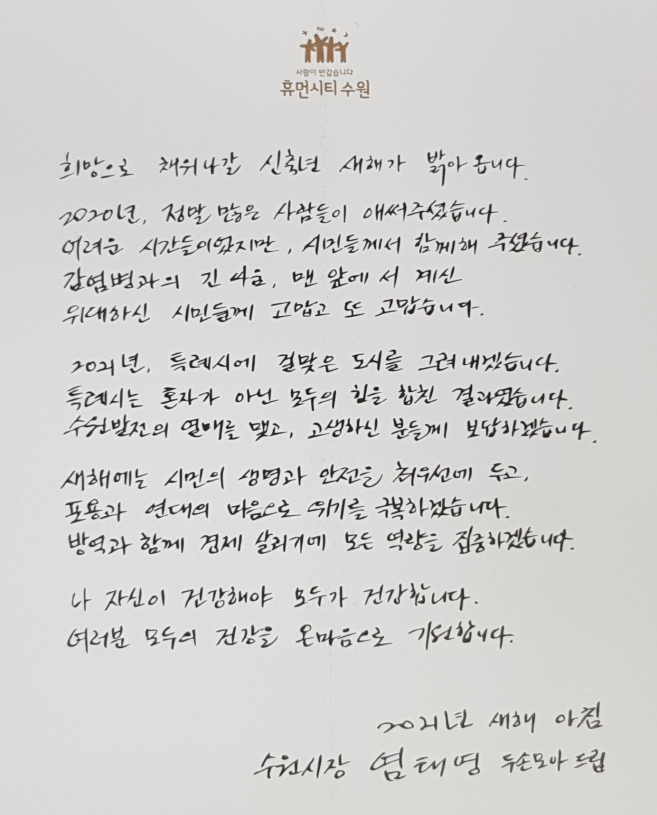 사람이 반갑습니다
휴먼시티 수원
희망으로 채워나갈 신축년 새해가 밝아 옵니다.
2020년, 정말 많은 사람들이 애써주셨습니다.
어려운 시간들이었지만, 시민들께서 함께해 주셨습니다.
감염병과의 긴 사투, 맨 앞에 서 계신
위대하신 시민들께 고맙고 또 고맙습니다.
2021년, 특례시에 걸맞은 도시를 그려내겠습니다.
특례시는 혼자가 아닌 모두의 힘을 합친 결과였습니다.
수원발전의 열매를 맺고, 고생하신 분들께 보답하겠습니다.
새해에는 시민의 생명과 안전을 최우선에 두고,
포용과 연대의 마음으로 위기를 극복하겠습니다.
방역과 함께 경제 살리기에 모든 역량을 집중하겠습니다.
나 자신이 건강해야 모두가 건강합니다.
여러분 모두의 건강을 온마음으로 기원합니다.
2021년 새해 아침
수원시장 염태영 두손모아 드림